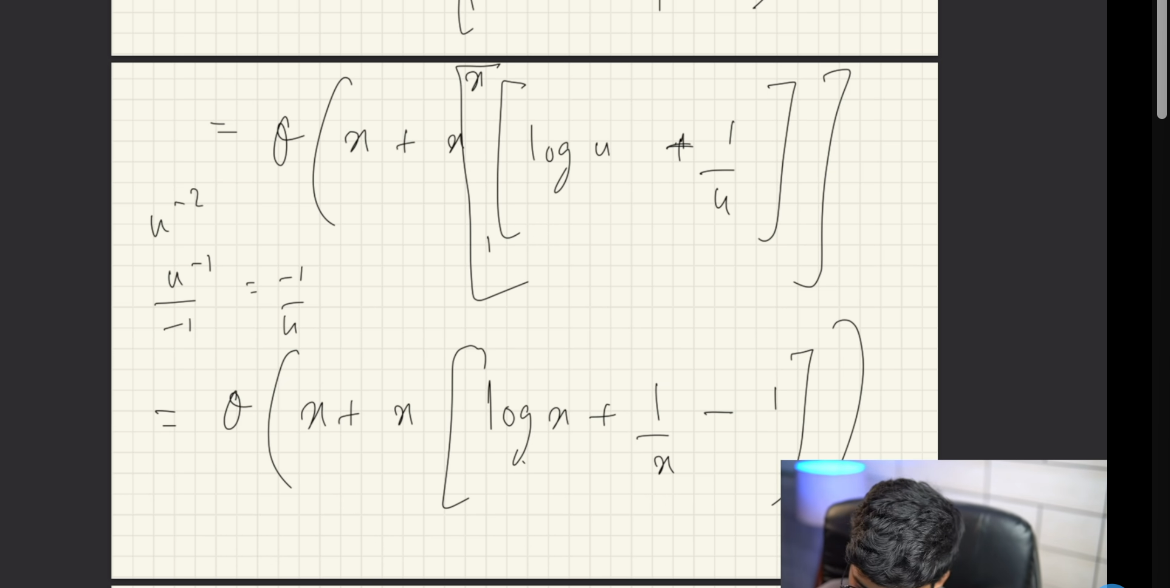 = θ ( x + x [ [ log u + 1/u ] ] )
x
1
u^-2
u^-1 / -1 = -1/u
= θ ( x + x [ log x + 1/x - 1 ] )